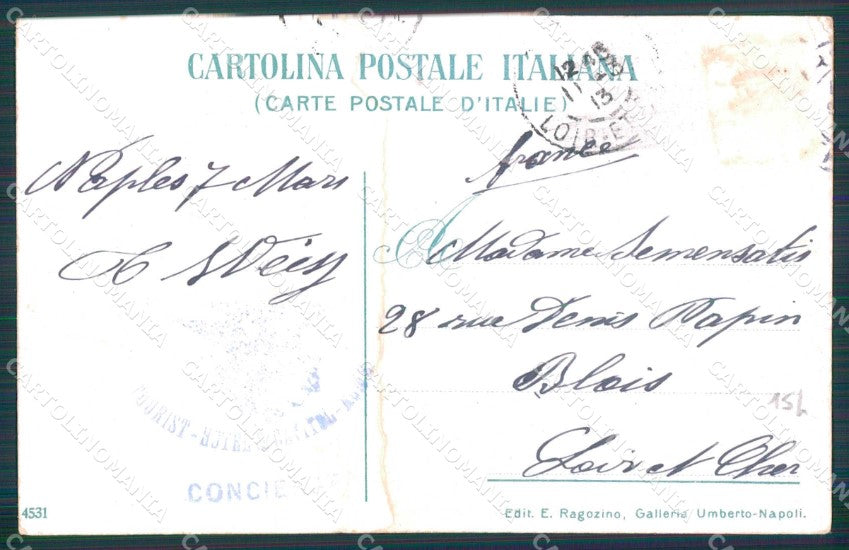 CARTOLINA POSTALE ITALIANA
(CARTE POSTALE D'ITALIE)
12
11 3
13
LOIR-ET
france
Naples 7 Mars
A Madame Semensatis
28 rue Denis Papin
Blois
Loir et Cher
15L
TOURIST-HOTEL
CONCIE
4531
Edit. E. Ragozino, Galleria Umberto-Napoli.
CARTOLINOMANIA